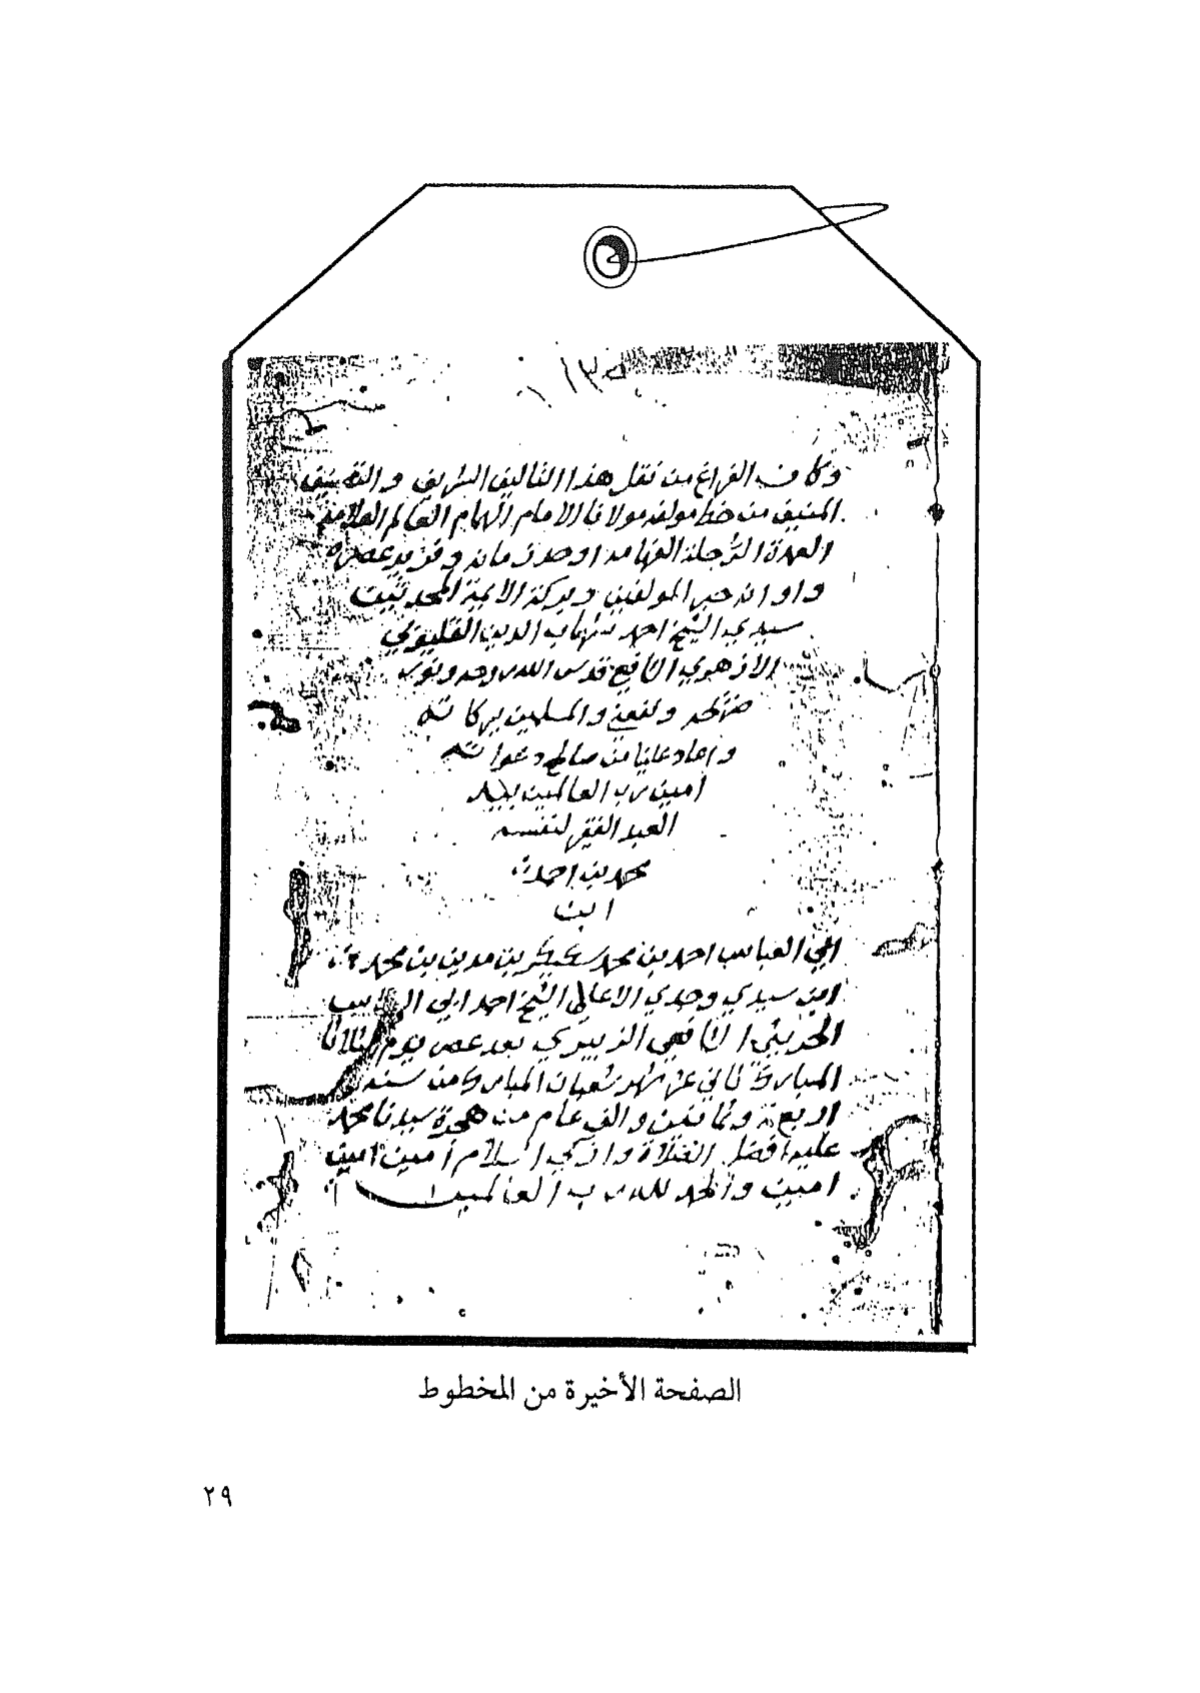 ١٣٥
وكان الفراغ من نقل هذا التاليف الشريف والتصنيف
المنيف من خط مولفه مولانا الامام الهمام العالم العلامه
العمدة الرُّحلة الفهامه اوحد زمانه وفريد عصره
واوانه خير المولفين وبركة الايمة المحدثين
سيدي الشيخ احمد شهاب الدين القليوبي
الازهري الشافعي قدس الله روحه ونور
ضريحه ونفعني والمسلمين ببركاته
واعاد علينا من صالح دعواته
امين رب العالمين بيد
العبد الفقير لنفسه
محمد بن احمد
ابن
ابي العباس احمد بن محمد بن مدين بن محمد
ابن سيدي وجدي الشيخ احمد ابي العباس
الحريثي الشافعي الزبيري بعد عصر يوم الثلاثا
المبارك ثاني عشر شهر شعبان المبارك من سنه
اربعة وثمانين والف عام من هجرة سيدنا محمد
عليه افضل الصلاة وازكي السلام أمين امين
امين والحمد لله رب العالمين
الصفحة الأخيرة من المخطوط
٢٩